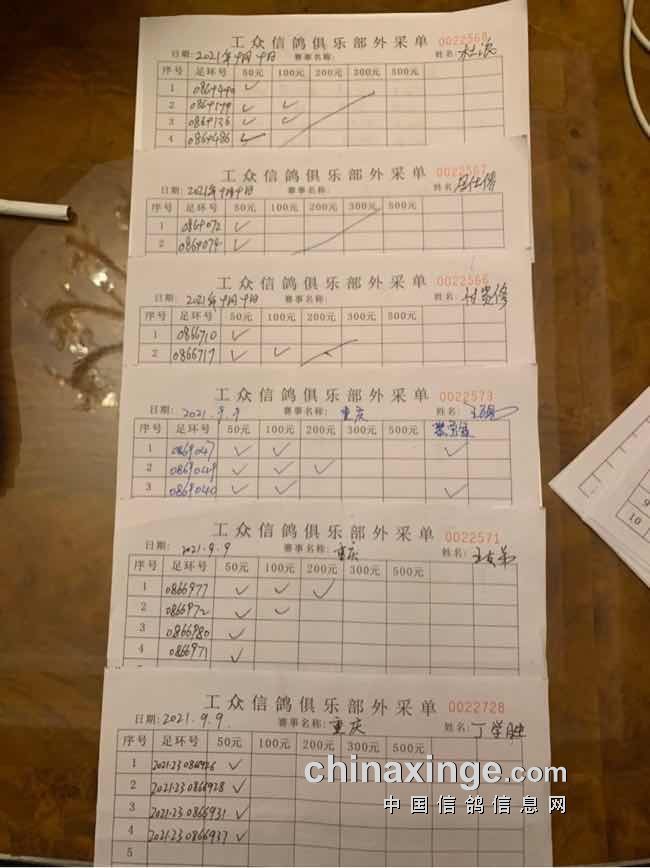 工众信鸽俱乐部外采单 0022568
日期: 2021年9月9日 赛事名称: 姓名:
序号 足环号 50元 100元 200元 300元 500元
1 ✓
2 0869199 ✓ ✓
3 0869136 ✓ ✓
4 0860486 ✓
工众信鸽俱乐部外采单 0022567
日期: 2021年9月9日 赛事名称: 姓名:
序号 足环号 50元 100元 200元 300元 500元
1 0869072 ✓
2 0869074 ✓
工众信鸽俱乐部外采单 0022566
日期: 2021年9月9日 赛事名称: 姓名:
序号 足环号 50元 100元 200元 300元 500元
1 0866710 ✓
2 0866717 ✓ ✓
工众信鸽俱乐部外采单 0022573
日期: 2021.9.9 赛事名称: 重庆 姓名:
序号 足环号 50元 100元 200元 300元 500元
1 0869047 ✓ ✓ ✓
2 0869049 ✓ ✓ ✓
3 0869040 ✓ ✓ ✓
工众信鸽俱乐部外采单 0022571
日期: 2021.9.9 赛事名称: 重庆 姓名:
序号 足环号 50元 100元 200元 300元 500元
1 0866977 ✓ ✓ ✓
2 0866972 ✓ ✓
3 0866980 ✓
4 0866971 ✓
工众信鸽俱乐部外采单 0022728
日期: 2021.9.9. 赛事名称: 重庆 姓名: 丁学胜
序号 足环号 50元 100元 200元 300元 500元
1 2021-23 0866926 ✓
2 2021-23 0866928 ✓
3 2021-23 0866931 ✓
4 2021-23 0866937 ✓
5
chinaxinge.com
中国信鸽信息网
9
10